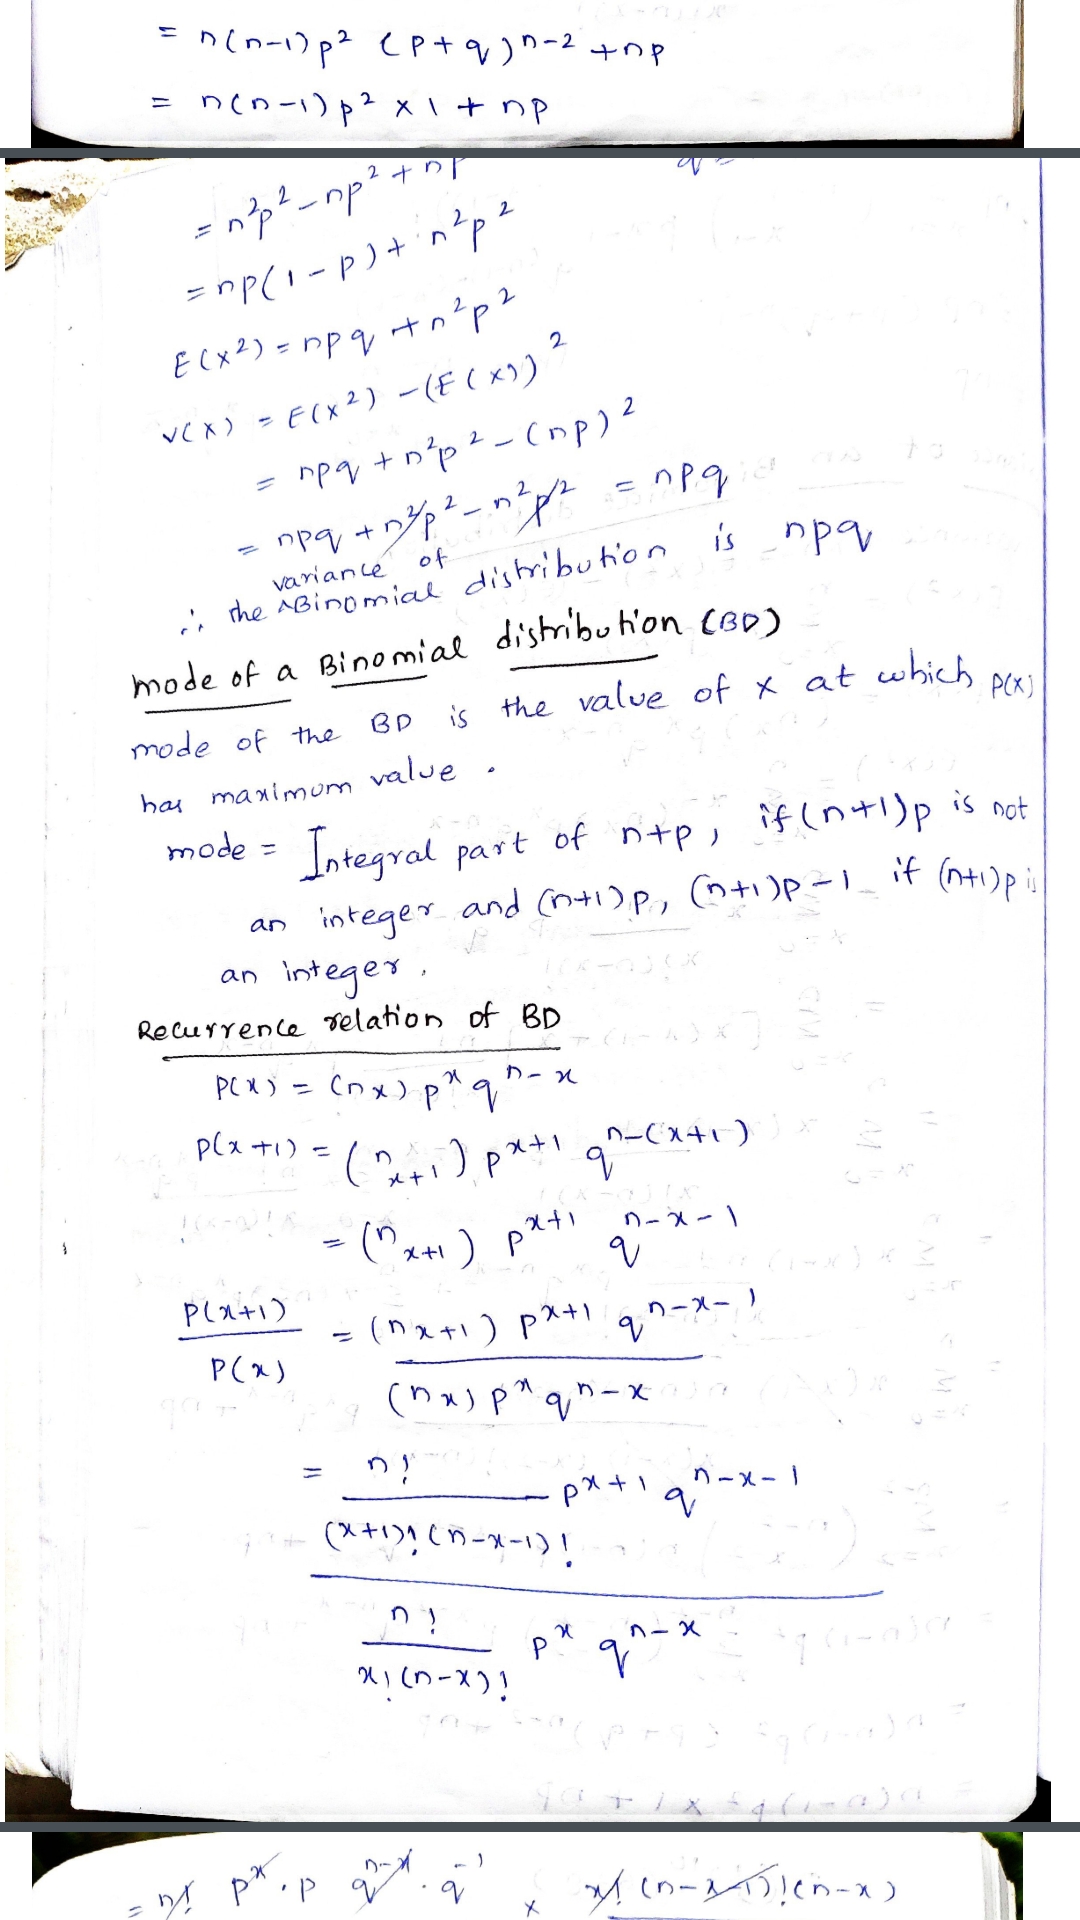 = n(n-1)p² (p+q)ⁿ⁻² + np
= n(n-1)p² × 1 + np
= n²p² - np² + np
= np(1-p) + n²p²
E(x²) = npq + n²p²
v(x) = E(x²) - (E(x))²
= npq + n²p² - (np)²
= npq + n²p² - n²p² = npq
∴ the ^Binomial distribution is npq
variance of
mode of a Binomial distribution (BD)
mode of the BD is the value of x at which p(x)
has maximum value.
mode = Integral part of n+p, if (n+1)p is not
an integer and (n+1)p, (n+1)p-1 if (n+1)p is
an integer.
Recurrence relation of BD
P(x) = (nx) pˣ qⁿ⁻ˣ
p(x+1) = (n x+1) pˣ⁺¹ qⁿ⁻⁽ˣ⁺¹⁾
= (n x+1) pˣ⁺¹ qⁿ⁻ˣ⁻¹
P(x+1) = (n x+1) pˣ⁺¹ qⁿ⁻ˣ⁻¹
P(x) (nx) pˣ qⁿ⁻ˣ
= n! pˣ⁺¹ qⁿ⁻ˣ⁻¹
(x+1)! (n-x-1)!
n! pˣ qⁿ⁻ˣ
x! (n-x)!
= n! pˣ.p qⁿ⁻ˣ.q⁻¹ × x! (n-x-1)! (n-x)